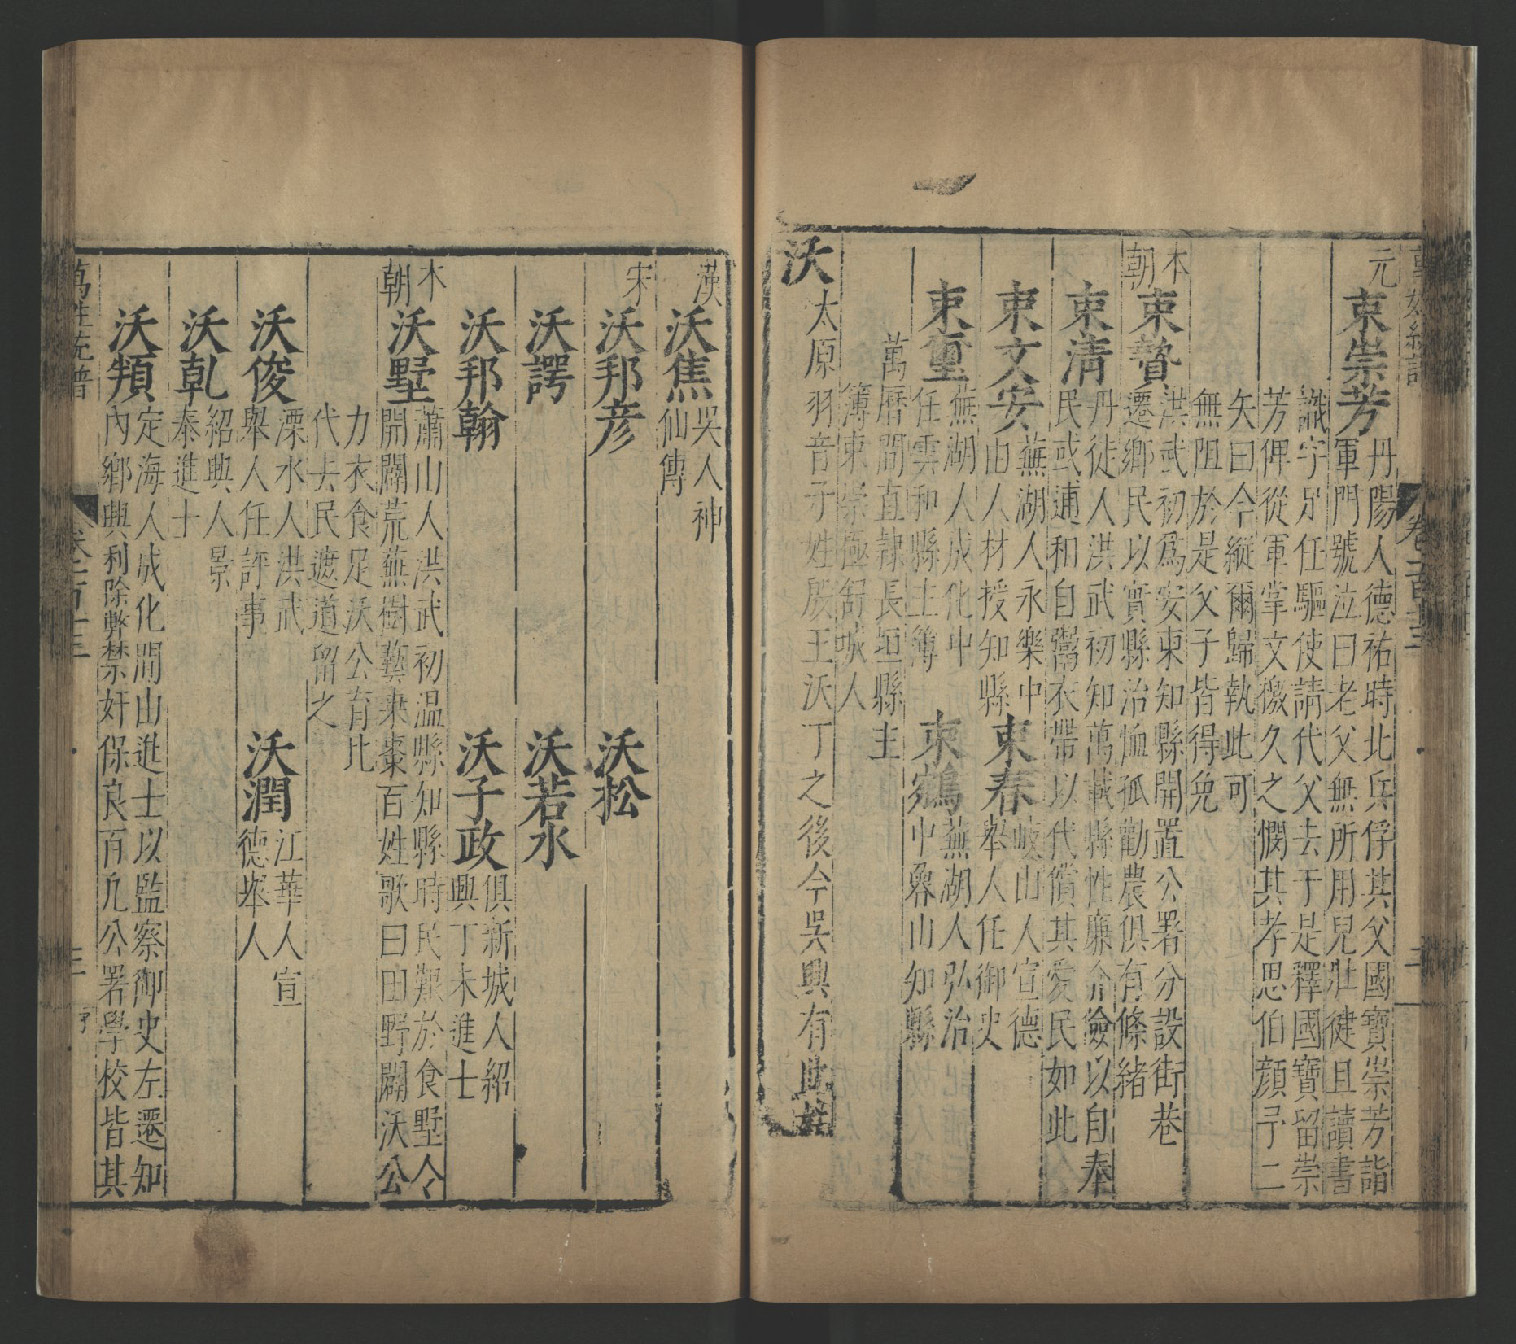 元
束崇芳
丹陽人德祐時北兵俘其父國寶崇芳詣
軍門號泣曰老父無所用兒壯健且讀書
識字足任驅使請代父去于是釋國寶留崇
芳俾從軍掌文檄久之憫其孝思伯顏予二
矢曰今縱爾歸執此可
無阻於是父子皆得免
本朝
束贄
洪武初為安東知縣開置公署分設街巷
遷鄉民以實縣治恤孤勸農俱有條緒
束清
丹徒人洪武初知萬載縣性廉介儉以自奉
民或逋和自鬻衣帶以代償其愛民如此
束文安
蕪湖人永樂中
山人材授知縣
束春
岐山人宣德
舉人任御史
束重
蕪湖人成化中
任雲和縣主簿
束鶴
蕪湖人弘治
中寧山知縣
萬曆間直隸長垣縣主
簿東崇極舒城人
沃
太原羽音子姓殷王沃丁之後今吳興有此姓
漢
沃焦
吳人神
仙傳
宋
沃邦彥
沃松
沃諤
沃若水
沃邦翰
沃子政
俱新城人紹
興丁未進士
本朝
沃墅
蕭山人洪武初温縣知縣時民艱於食墅令
開闢荒蕪樹藝桑棗百姓歌曰田野闢沃公
力衣食足沃公育比
代去民遮道留之
沃俊
溧水人洪武
舉人任評事
沃潤
江華人宣
德舉人
沃乾
紹興人景
泰進士
沃頖
定海人成化間山進士以監察御史左遷知
內鄉興利除弊禁奸保良百凡公署學校皆其
萬姓統譜
卷之百十三
三